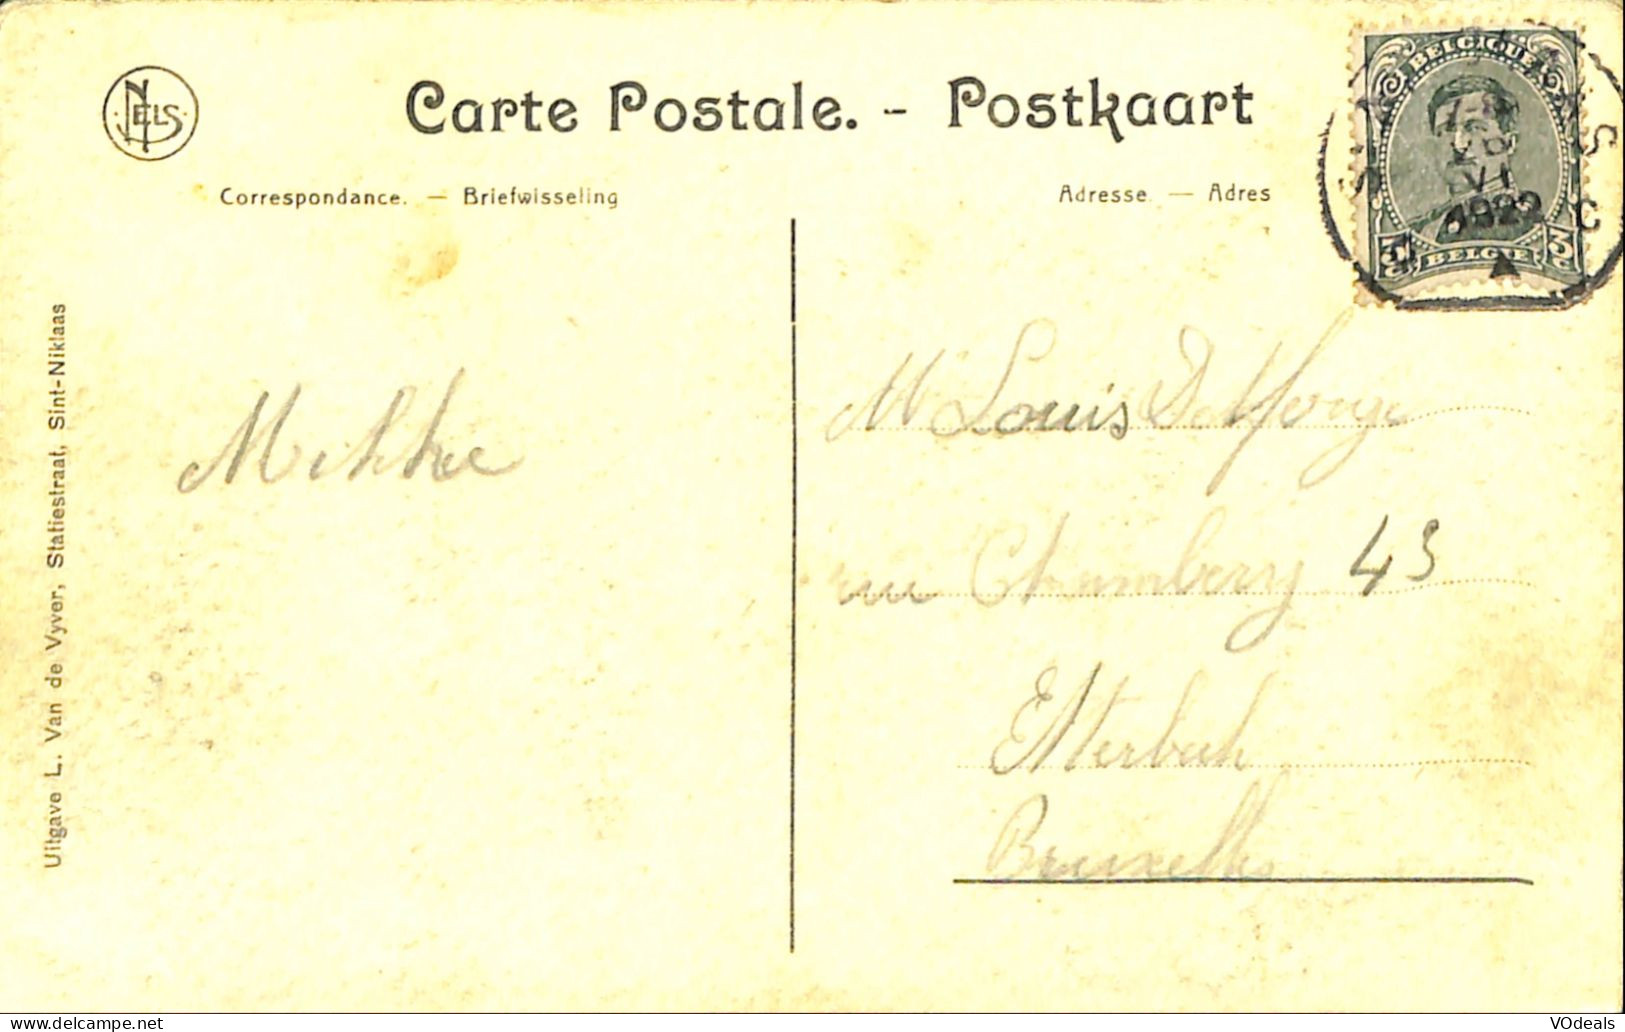 NELS
Carte Postale. - Postkaart
Correspondance. — Briefwisseling
Adresse — Adres
BELGIQUE
VI
1922
3 C 3 C
BELGIE
Uitgave L. Van de Vyver, Statiestraat, Sint-Niklaas
Mr Louis Delforge
rue Chambery 43
Etterbeek
Bruxelles